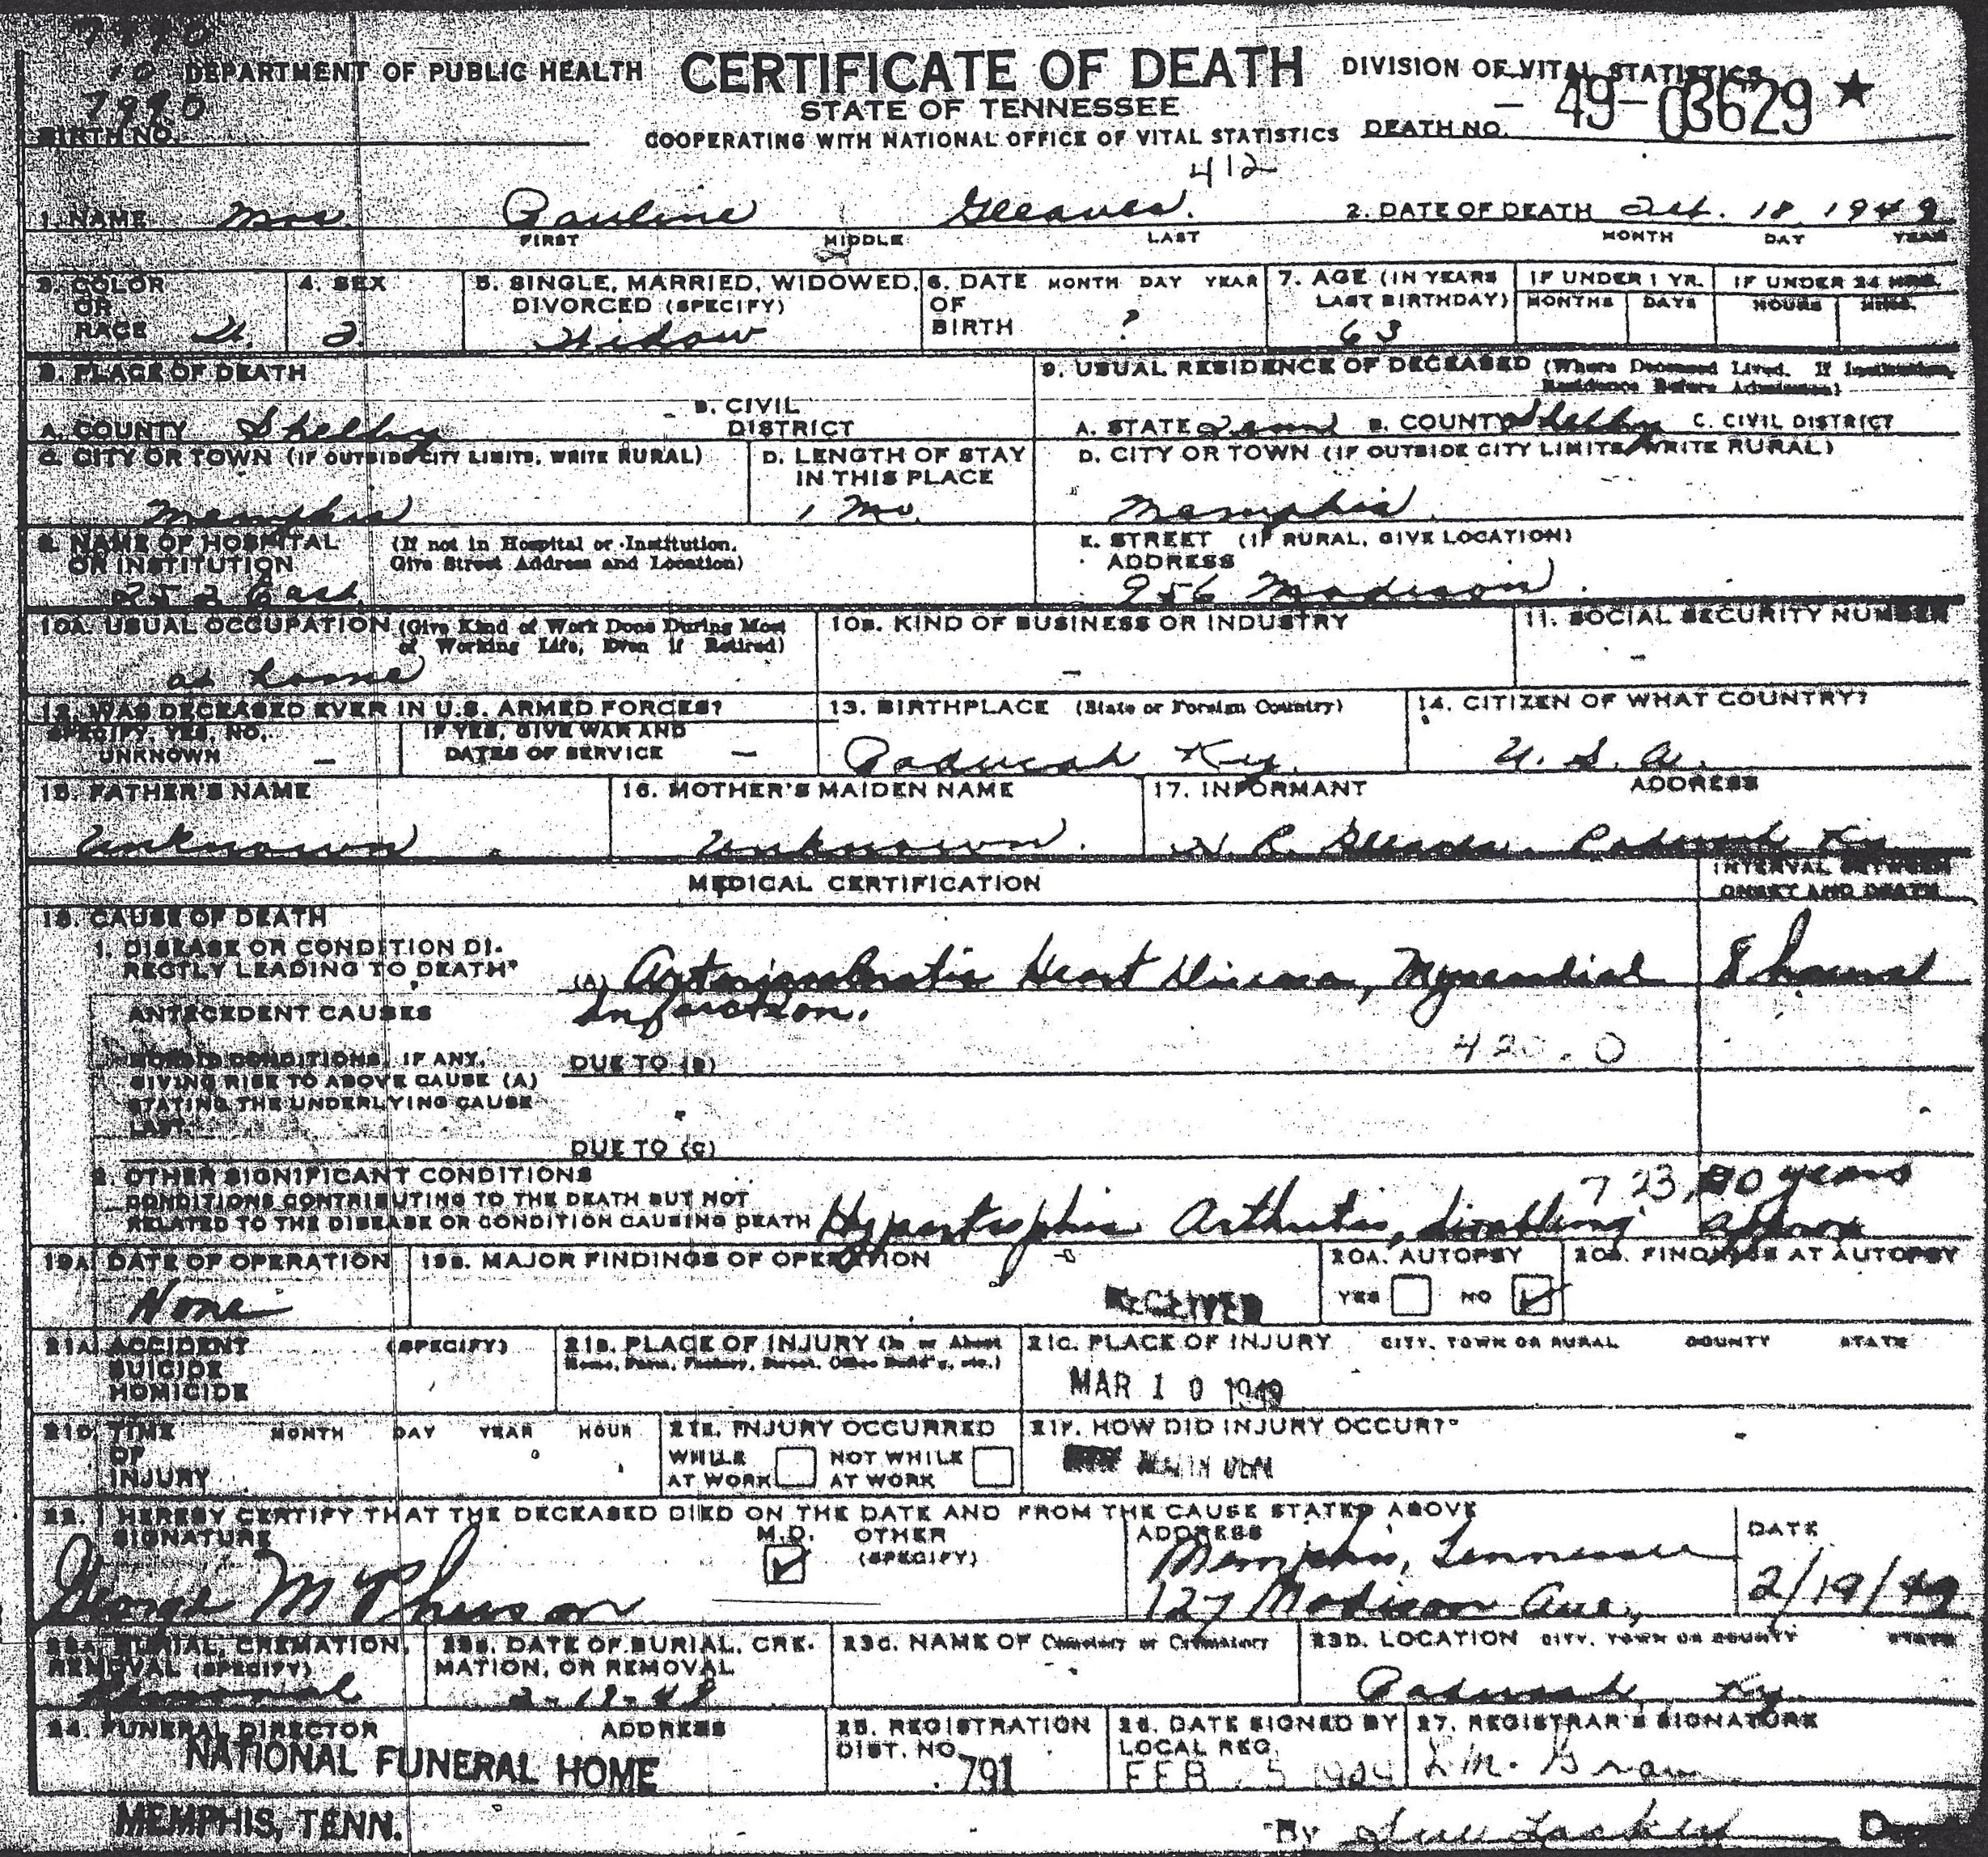 7990
10 DEPARTMENT OF PUBLIC HEALTH CERTIFICATE OF DEATH DIVISION OF VITAL STATISTICS
7990 STATE OF TENNESSEE - 49-03629 ★
BIRTH NO. COOPERATING WITH NATIONAL OFFICE OF VITAL STATISTICS DEATH NO.
412
1. NAME Mrs. Pauline Gleaves. 2. DATE OF DEATH Feb. 18, 1949
FIRST MIDDLE LAST MONTH DAY YEAR
3. COLOR OR RACE W. 4. SEX 5. SINGLE, MARRIED, WIDOWED, DIVORCED (SPECIFY) Widow 6. DATE OF BIRTH MONTH DAY YEAR ? 7. AGE (IN YEARS LAST BIRTHDAY) 63 IF UNDER 1 YR. MONTHS DAYS IF UNDER 24 HRS. HOURS MINS.
8. PLACE OF DEATH 9. USUAL RESIDENCE OF DECEASED (Where Deceased Lived. If Institution, Residence Before Admission)
A. COUNTY Shelby B. CIVIL DISTRICT A. STATE Tenn B. COUNTY Shelby C. CIVIL DISTRICT
C. CITY OR TOWN (IF OUTSIDE CITY LIMITS, WRITE RURAL) D. LENGTH OF STAY IN THIS PLACE D. CITY OR TOWN (IF OUTSIDE CITY LIMITS, WRITE RURAL)
Memphis 1 Mo. Memphis
E. NAME OF HOSPITAL OR INSTITUTION (If not in Hospital or Institution, Give Street Address and Location) E. STREET ADDRESS (IF RURAL, GIVE LOCATION)
252 East 956 Madison
10A. USUAL OCCUPATION (Give Kind of Work Done During Most of Working Life, Even if Retired) 10B. KIND OF BUSINESS OR INDUSTRY 11. SOCIAL SECURITY NUMBER
at home - -
12. WAS DECEASED EVER IN U.S. ARMED FORCES? 13. BIRTHPLACE (State or Foreign Country) 14. CITIZEN OF WHAT COUNTRY?
SPECIFY, YES, NO, UNKNOWN - IF YES, GIVE WAR AND DATES OF SERVICE - Paducah Ky. U. S. A.
15. FATHER'S NAME 16. MOTHER'S MAIDEN NAME 17. INFORMANT ADDRESS
Unknown Unknown. R. Gleaves. Paducah Ky
MEDICAL CERTIFICATION INTERVAL BETWEEN ONSET AND DEATH
18. CAUSE OF DEATH
1. DISEASE OR CONDITION DIRECTLY LEADING TO DEATH* (A) Arteriosclerotic Heart Disease, Myocardial 8 hours
ANTECEDENT CAUSES Infarction.
420.0
MORBID CONDITIONS, IF ANY, GIVING RISE TO ABOVE CAUSE (A) STATING THE UNDERLYING CAUSE LAST. DUE TO (B)
DUE TO (C)
2. OTHER SIGNIFICANT CONDITIONS 723, 20 years
CONDITIONS CONTRIBUTING TO THE DEATH BUT NOT RELATED TO THE DISEASE OR CONDITION CAUSING DEATH Hypertrophic Arthritis, disabling approx
19A. DATE OF OPERATION 19B. MAJOR FINDINGS OF OPERATION 20A. AUTOPSY 20B. FINDINGS AT AUTOPSY
None RECEIVED YES NO
21A. ACCIDENT SUICIDE HOMICIDE (SPECIFY) 21B. PLACE OF INJURY (In or About Home, Farm, Factory, Street, Office Build'g, etc.) 21C. PLACE OF INJURY CITY, TOWN OR RURAL COUNTY STATE
MAR 10 1949
21D. TIME OF INJURY MONTH DAY YEAR HOUR 21E. INJURY OCCURRED WHILE AT WORK NOT WHILE AT WORK 21F. HOW DID INJURY OCCUR?
22. I HEREBY CERTIFY THAT THE DECEASED DIED ON THE DATE AND FROM THE CAUSE STATED ABOVE
SIGNATURE M.D. OTHER (SPECIFY) ADDRESS DATE
George McPherson Memphis, Tennessee 127 Madison Ave, 2/19/49
23A. BURIAL, CREMATION, REMOVAL (SPECIFY) 23B. DATE OF BURIAL, CREMATION, OR REMOVAL 23C. NAME OF Cemetery or Crematory 23D. LOCATION CITY, TOWN OR COUNTY STATE
Removal Paducah, Ky.
24. FUNERAL DIRECTOR ADDRESS 25. REGISTRATION DIST. NO. 26. DATE SIGNED BY LOCAL REG. 27. REGISTRAR'S SIGNATURE
NATIONAL FUNERAL HOME 791 FEB L.M.
MEMPHIS, TENN. By